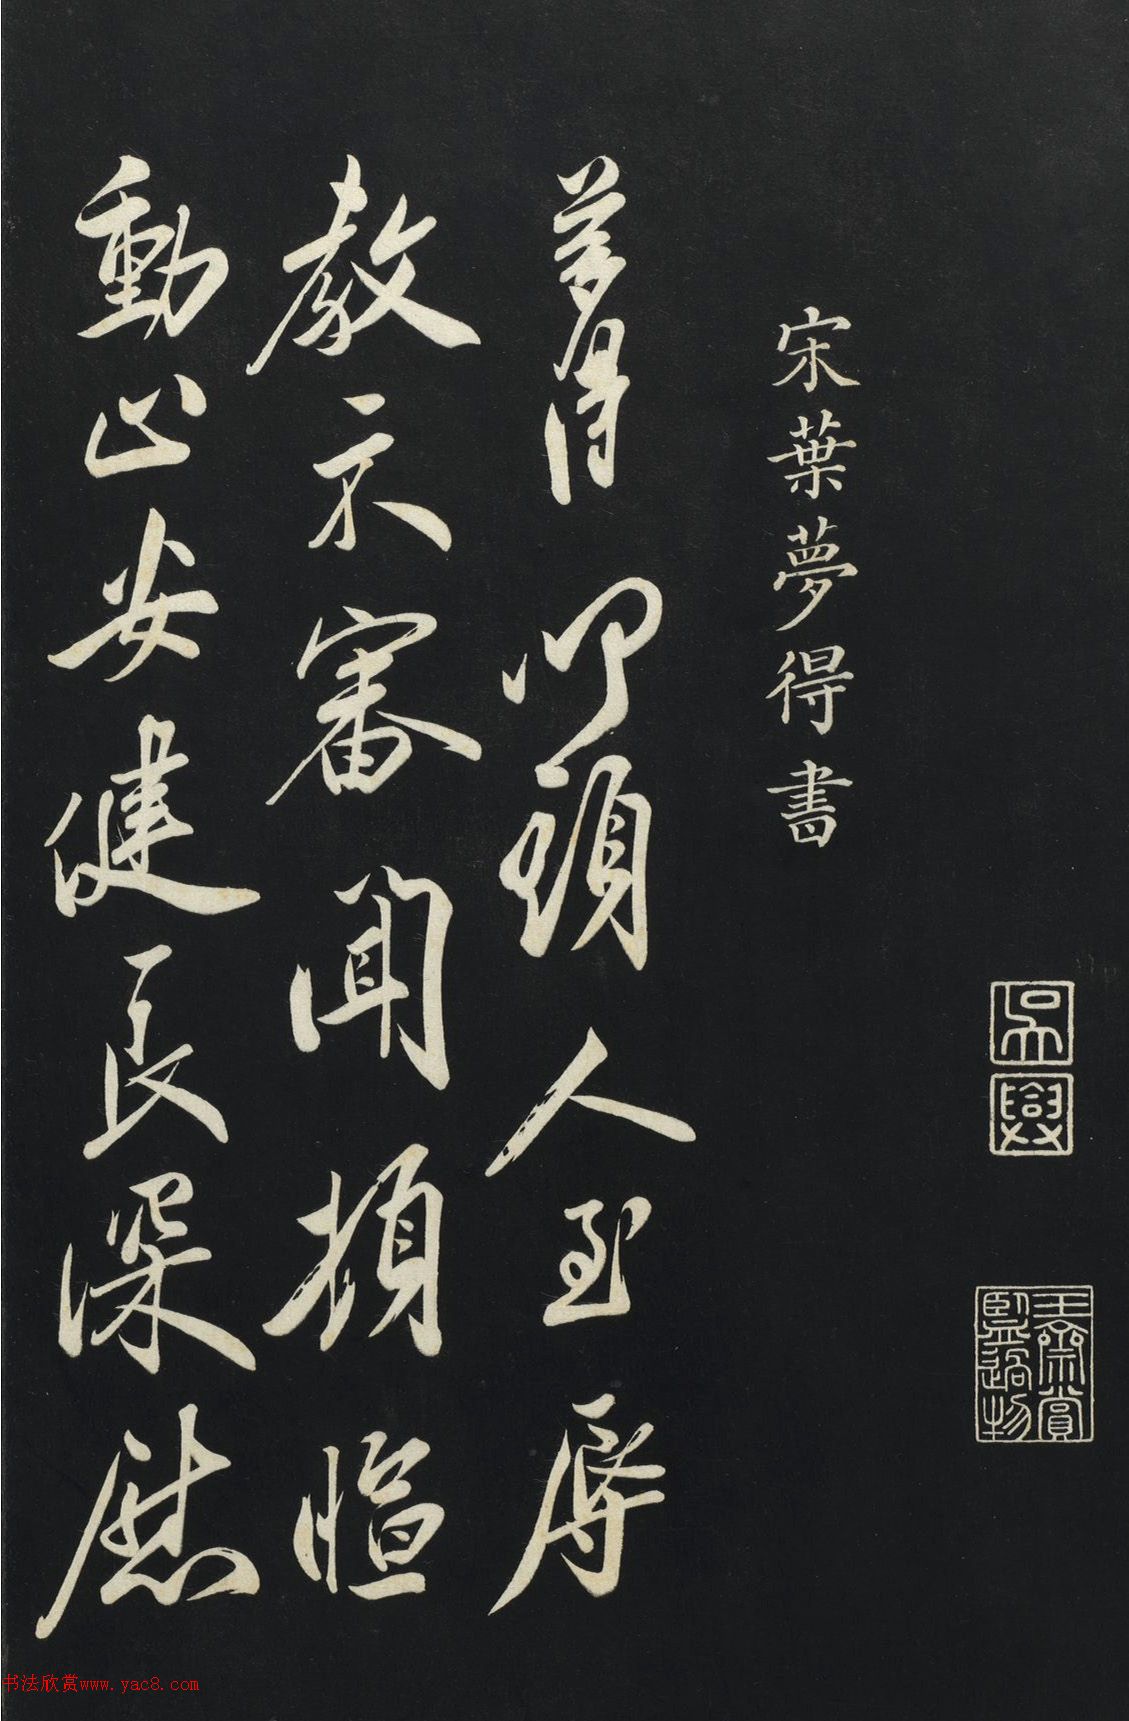 吳興
宋葉夢得書
夢得叩頭人至辱
教示審聞損
動止安健良深慰
书法欣赏www.yac8.com